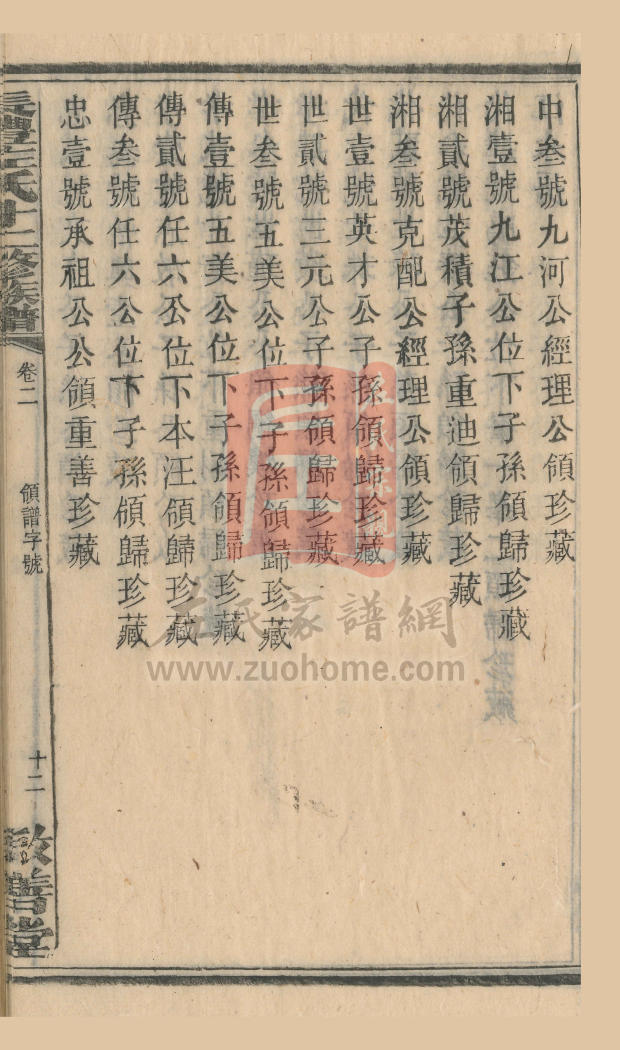 中叁號九河公經理公領珍藏
湘壹號九江公位下子孫領歸珍藏
湘貳號茂積子孫重迪領歸珍藏
湘叁號克配公經理公領珍藏
世壹號英才公子孫領歸珍藏
世貳號三元公子孫領歸珍藏
世叁號五美公位下子孫領歸珍藏
傳壹號五美公位下子孫領歸珍藏
傳貳號任六公位下本汪領歸珍藏
傳叁號任六公位下子孫領歸珍藏
忠壹號承祖公公領重善珍藏
氏十二修族譜
卷二
領譜字號
十二
敘善堂
左氏家譜網
www.zuohome.com